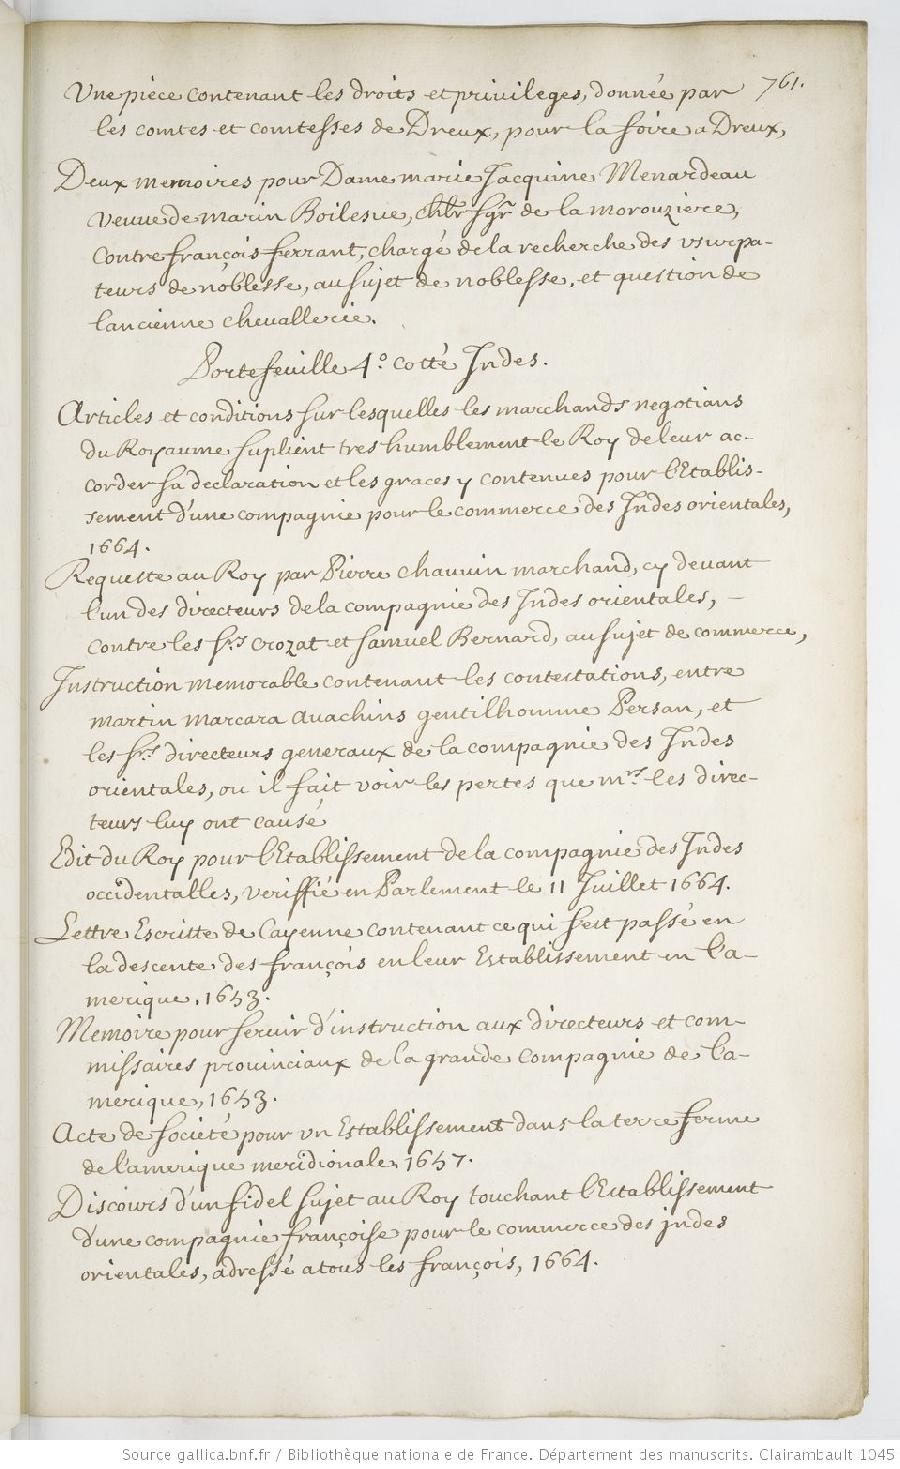 761.
Une piece contenant les droits et privileges, donnée par
les comtes et comtesses de Dreux, pour la foire a Dreux,
Deux memoires pour Dame marie Jacquine Menardeau
veuve de marin Boilesve, chlr sgr de la morouziere,
contre françois ferrant, chargé de la recherche des vsurpa-
teurs de noblesse, au sujet de noblesse, et question de
lancienne chevallerie.
Portefeuille 4.º cotté Indes.
Articles et conditions sur lesquelles les marchands negotians
du Royaume suplient tres humblement le Roy de leur ac-
corder sa declaration et les graces y contenues pour l'Etablis-
sement d'une compagnie pour le commerce des Indes orientales,
1664.
Requeste au Roy par Pierre chauvin marchand, cy devant
l'un des directeurs de la compagnie des Indes orientales, -
contre les srs crozat et samuel Bernard, au sujet de commerce,
Instruction memorable contenant les contestations, entre
martin marcara avachins gentilhomme Persan, et
les srs directeurs generaux de la compagnie des Indes
orientales, ou il fait voir les pertes que mrs les direc-
teurs luy ont causé
Edit du Roy pour l'Etablissement de la compagnie des Indes
occidentalles, veriffié en Parlement le 11 Juillet 1664.
Lettre Escritte de Cayenne contenant ce qui s'est passé en
la descente des françois en leur Establissement en l'a-
merique, 1653.
Memoire pour servir d'instruction aux directeurs et com-
missaires provinciaux de la grande compagnie de l'a-
merique, 1653.
Acte de societé pour vn Establissement dans la terre ferme
de l'amerique meridionale, 1657.
Discours d'un fidel sujet au Roy touchant l'Establissement
d'une compagnie françoise pour le commerce des indes
orientales, adressé a tous les françois, 1664.
Source gallica.bnf.fr / Bibliothèque nationa e de France. Département des manuscrits. Clairambault 1045